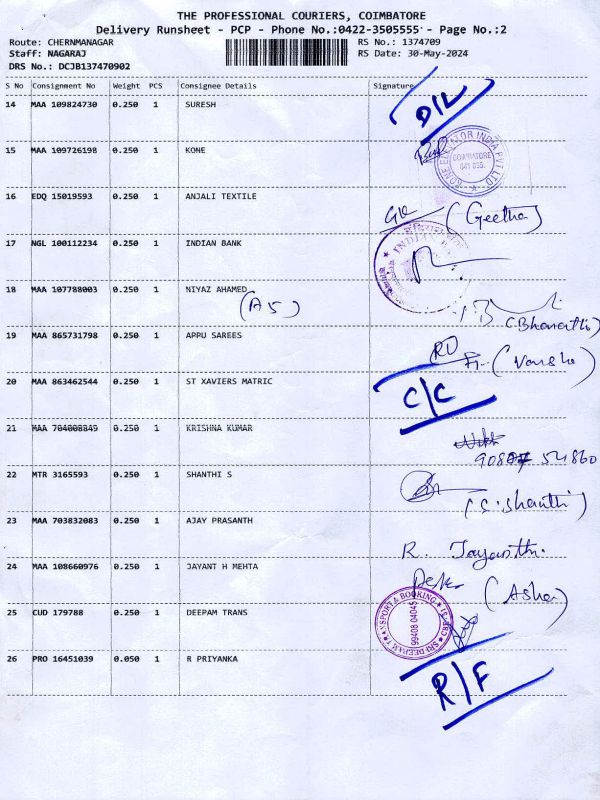 THE PROFESSIONAL COURIERS, COIMBATORE
Delivery Runsheet - PCP - Phone No.:0422-3505555 - Page No.:2
Route: CHERNMANAGAR
Staff: NAGARAJ
DRS No.: DCJB137470902
RS No.: 1374709
RS Date: 30-May-2024
S No Consignment No Weight PCS Consignee Details Signature
14 MAA 109824730 0.250 1 SURESH D/L
15 MAA 109726198 0.250 1 KONE
KONE ELEVATOR INDIA PVT LTD
COIMBATORE
641 035.
16 EDQ 15019593 0.250 1 ANJALI TEXTILE
(Geetha)
17 NGL 100112234 0.250 1 INDIAN BANK
18 MAA 107788003 0.250 1 NIYAZ AHAMED
(A5)
(Bharathi)
19 MAA 865731798 0.250 1 APPU SAREES
20 MAA 863462544 0.250 1 ST XAVIERS MATRIC
C/C
21 MAA 704008849 0.250 1 KRISHNA KUMAR
54860
22 MTR 3165593 0.250 1 SHANTHI S
(S. Shanthi)
23 MAA 703832083 0.250 1 AJAY PRASANTH
R. Jayanthi.
24 MAA 108660976 0.250 1 JAYANT H MEHTA
(Asha)
25 CUD 179788 0.250 1 DEEPAM TRANS
99408 04045
26 PRO 16451039 0.050 1 R PRIYANKA
R/F